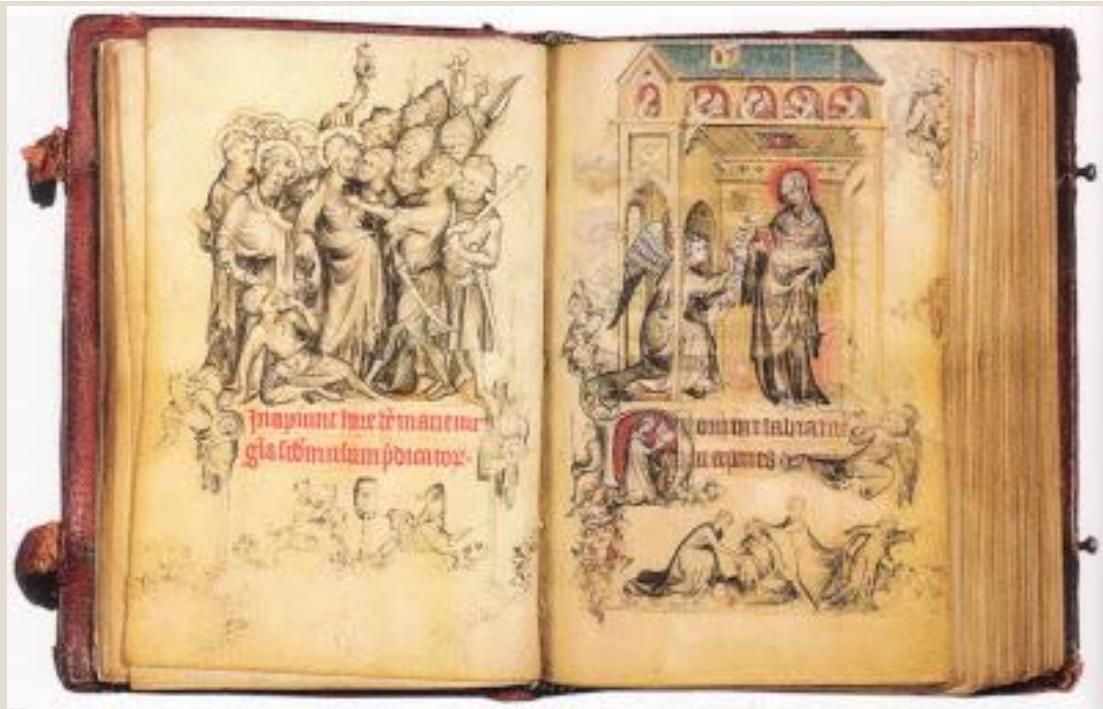 Incipiunt hore be marie uir
gis scdm usum p̄dicator
Domine labia me
a aperies